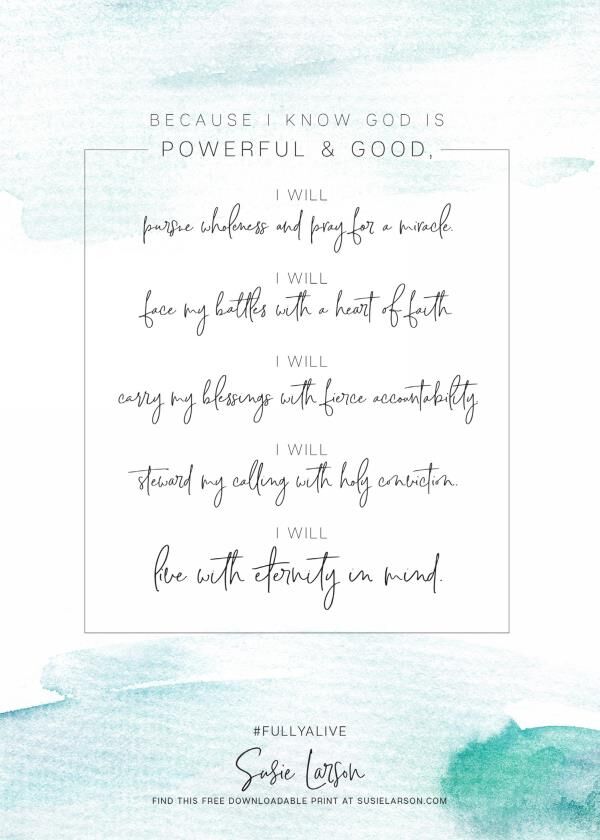 BECAUSE I KNOW GOD IS
POWERFUL & GOOD,
I WILL
pursue wholeness and pray for a miracle.
I WILL
face my battles with a heart of faith
I WILL
carry my blessings with fierce accountability.
I WILL
steward my calling with holy conviction..
I WILL
live with eternity in mind.
#FULLYALIVE
Susie Larson
FIND THIS FREE DOWNLOADABLE PRINT AT SUSIELARSON.COM